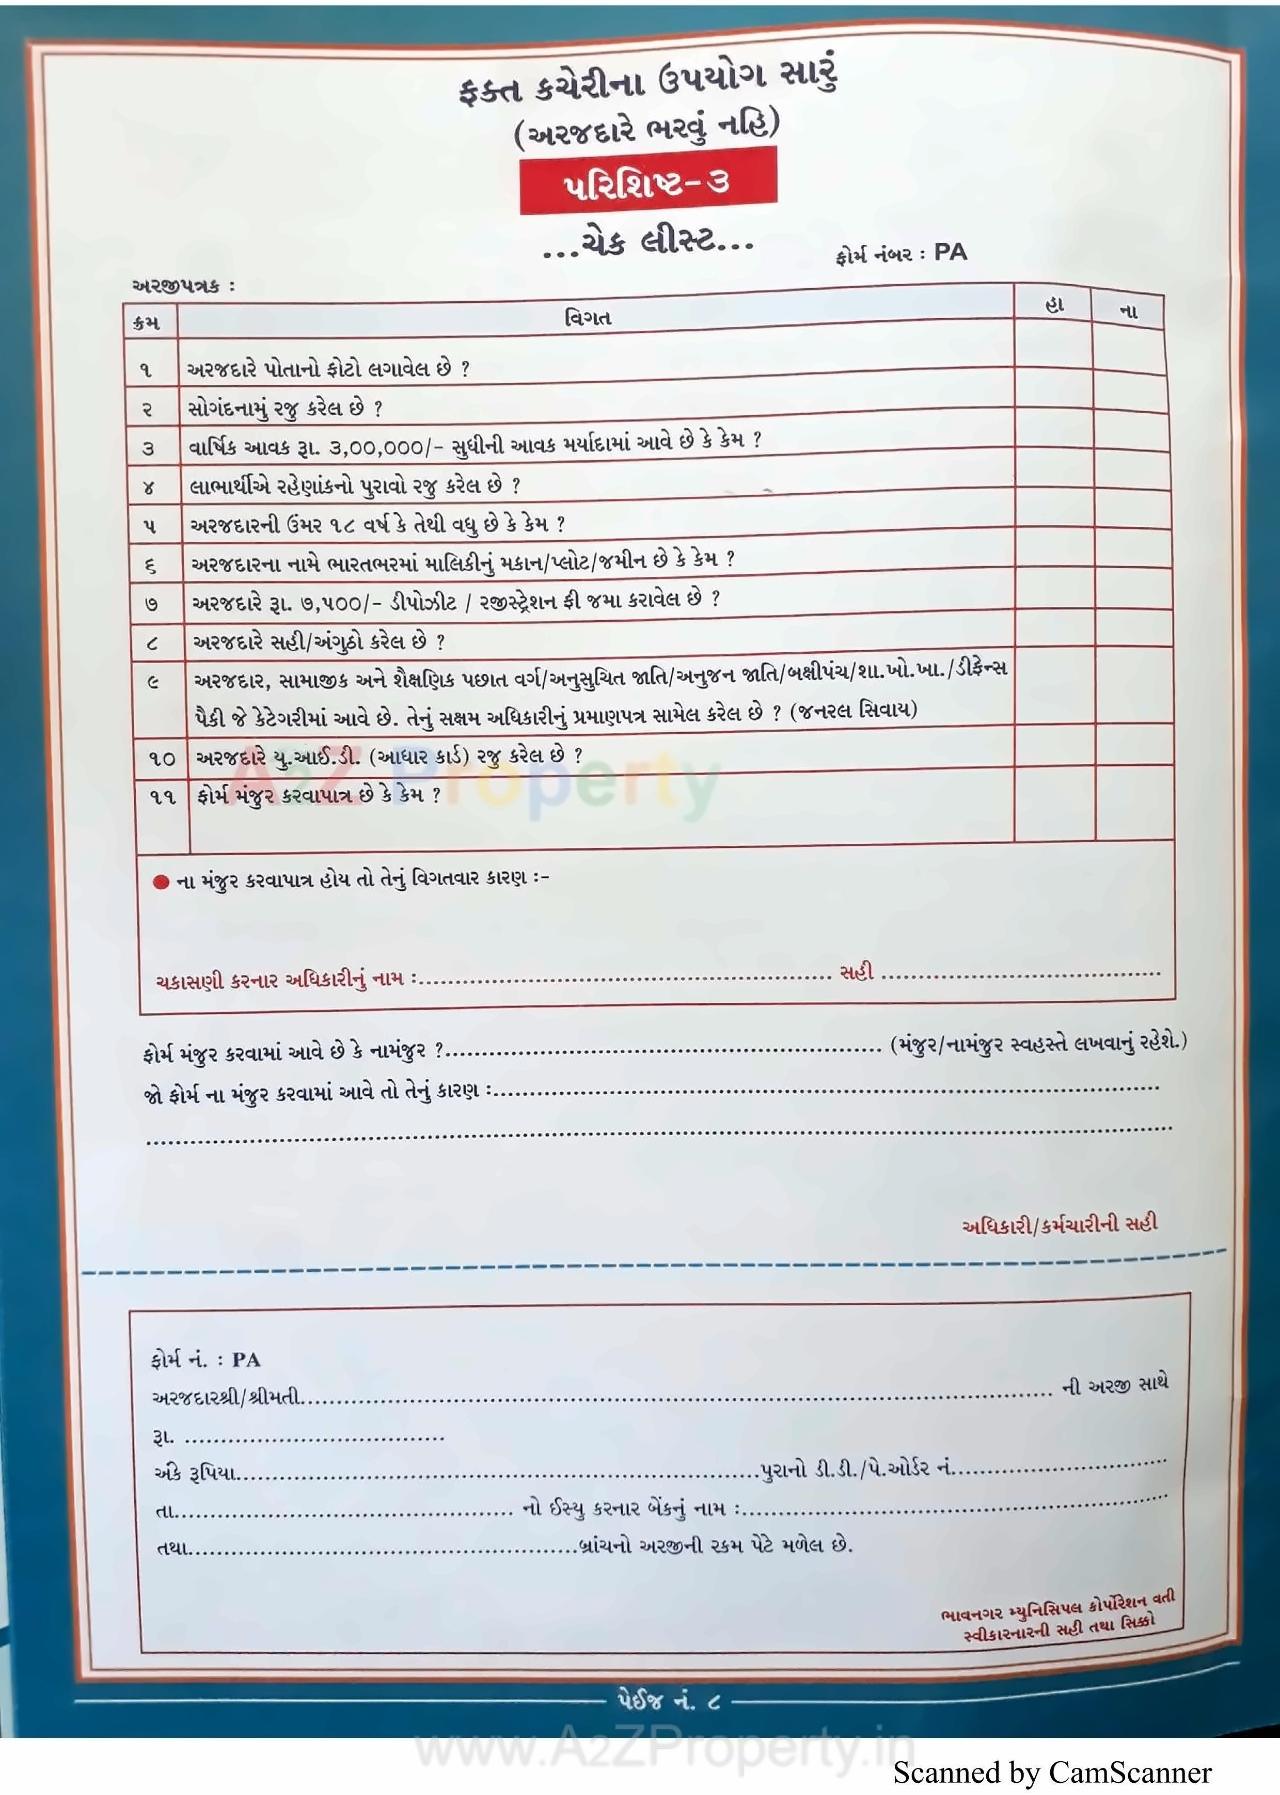 ફક્ત કચેરીના ઉપયોગ સારું
(અરજદારે ભરવું નહિ)
પરિશિષ્ટ-૩
...ચેક લીસ્ટ...
ફોર્મ નંબર : PA
અરજીપત્રક :
ક્રમ વિગત હા ના
૧ અરજદારે પોતાનો ફોટો લગાવેલ છે ?
૨ સોગંદનામું રજુ કરેલ છે ?
૩ વાર્ષિક આવક રૂા. ૩,૦૦,૦૦૦/- સુધીની આવક મર્યાદામાં આવે છે કે કેમ ?
૪ લાભાર્થીએ રહેણાંકનો પુરાવો રજુ કરેલ છે ?
૫ અરજદારની ઉંમર ૧૮ વર્ષ કે તેથી વધુ છે કે કેમ ?
૬ અરજદારના નામે ભારતભરમાં માલિકીનું મકાન/પ્લોટ/જમીન છે કે કેમ ?
૭ અરજદારે રૂા. ૭,૫૦૦/- ડીપોઝીટ / રજીસ્ટ્રેશન ફી જમા કરાવેલ છે ?
૮ અરજદારે સહી/અંગુઠો કરેલ છે ?
૯ અરજદાર, સામાજીક અને શૈક્ષણિક પછાત વર્ગ/અનુસુચિત જાતિ/અનુજન જાતિ/બક્ષીપંચ/શા.ખો.ખા./ડીફેન્સ
પૈકી જે કેટેગરીમાં આવે છે. તેનું સક્ષમ અધિકારીનું પ્રમાણપત્ર સામેલ કરેલ છે ? (જનરલ સિવાય)
૧૦ અરજદારે યુ.આઈ.ડી. (આધાર કાર્ડ) રજુ કરેલ છે ?
૧૧ ફોર્મ મંજુર કરવાપાત્ર છે કે કેમ ?
A2Z Property
● ના મંજુર કરવાપાત્ર હોય તો તેનું વિગતવાર કારણ :-
ચકાસણી કરનાર અધિકારીનું નામ :.................................................... સહી ....................................
ફોર્મ મંજુર કરવામાં આવે છે કે નામંજુર ?...................................................... (મંજુર/નામંજુર સ્વહસ્તે લખવાનું રહેશે.)
જો ફોર્મ ના મંજુર કરવામાં આવે તો તેનું કારણ :...................................................................................
................................................................................................................................
અધિકારી/કર્મચારીની સહી
ફોર્મ નં. : PA
અરજદારશ્રી/શ્રીમતી.............................................................................................. ની અરજી સાથે
રૂા. .................................
અંકે રૂપિયા..................................................................પુરાનો ડી.ડી./પે.ઓર્ડર નં...........................
તા........................................... નો ઈસ્યુ કરનાર બેંકનું નામ :......................................................
તથા.................................................બ્રાંચનો અરજીની રકમ પેટે મળેલ છે.
ભાવનગર મ્યુનિસિપલ કોર્પોરેશન વતી
સ્વીકારનારની સહી તથા સિક્કો
પેઈજ નં. ૮
www.A2ZProperty.in
Scanned by CamScanner